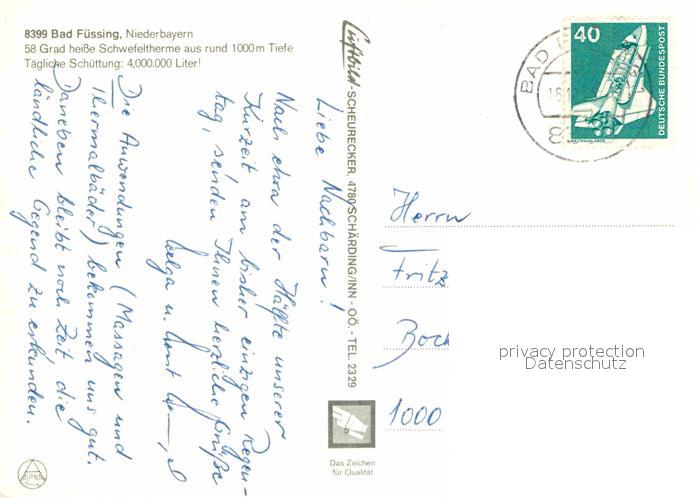 8399 Bad Füssing, Niederbayern
58 Grad heiße Schwefeltherme aus rund 1000 m Tiefe
Tägliche Schüttung: 4,000.000 Liter!
Liebe Nachbarn!
Nach etwa der Hälfte unserer
Kurzeit am bisher einzigen Regen-
tag, senden Ihnen herzliche Grüße
Helga u.
Die Anwendungen (Massagen und
Thermalbäder) bekommen uns gut.
Daneben bleibt noch Zeit die
ländliche Gegend zu erkunden.
Luftbild-SCHEURECKER, 4780 SCHÄRDING/INN - OÖ. - TEL. 2329
Das Zeichen
für Qualität
ALPINA
40
DEUTSCHE BUNDESPOST
WELTRAUMLABOR
BAD
Herrn
Fritz
Boch
1000
privacy protection
Datenschutz